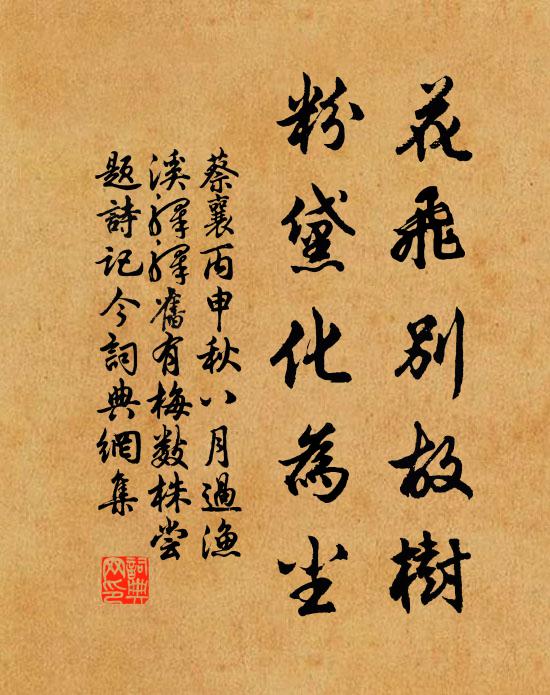 花飛別故樹
粉黛化為尘
蔡襄丙申秋八月過漁
溪驛驛舊有梅数株尝
題詩記今詞典網集
詞典网印